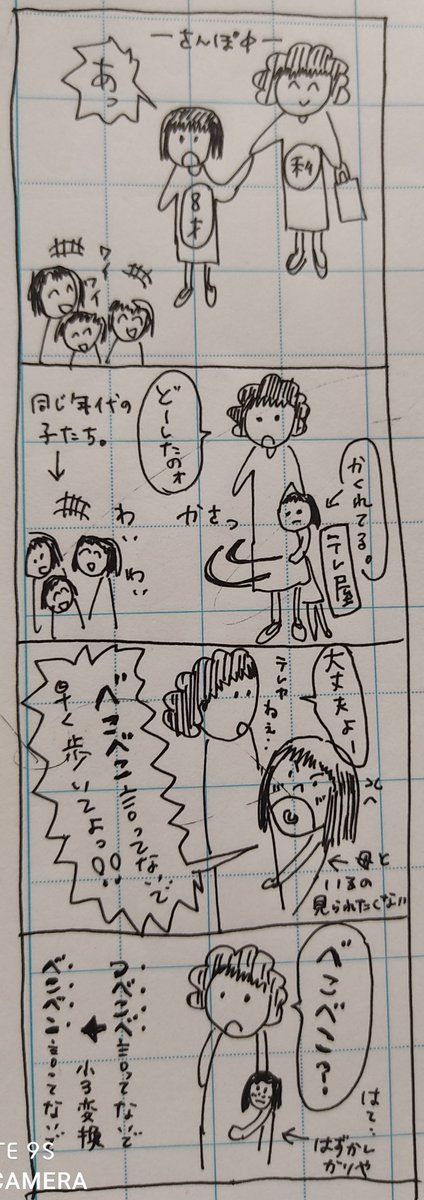 ーさんぽ中ー
あっ
8才
私
ワイ
ワイ
どーしたのォ
同じ年代の
子たち。
かくれてる。
テレ屋
かさっ
わい
わい
大丈夫よー
テレヤ
ねぇ…
べこべこ言ってないで
早く歩いてよっ!!
母と
いるの
見られたくない
べこべこ?
はて…
はずかし
がりや
つべこべ言ってないで
小3変換
べこべこ言ってないで
TE 9S
CAMERA